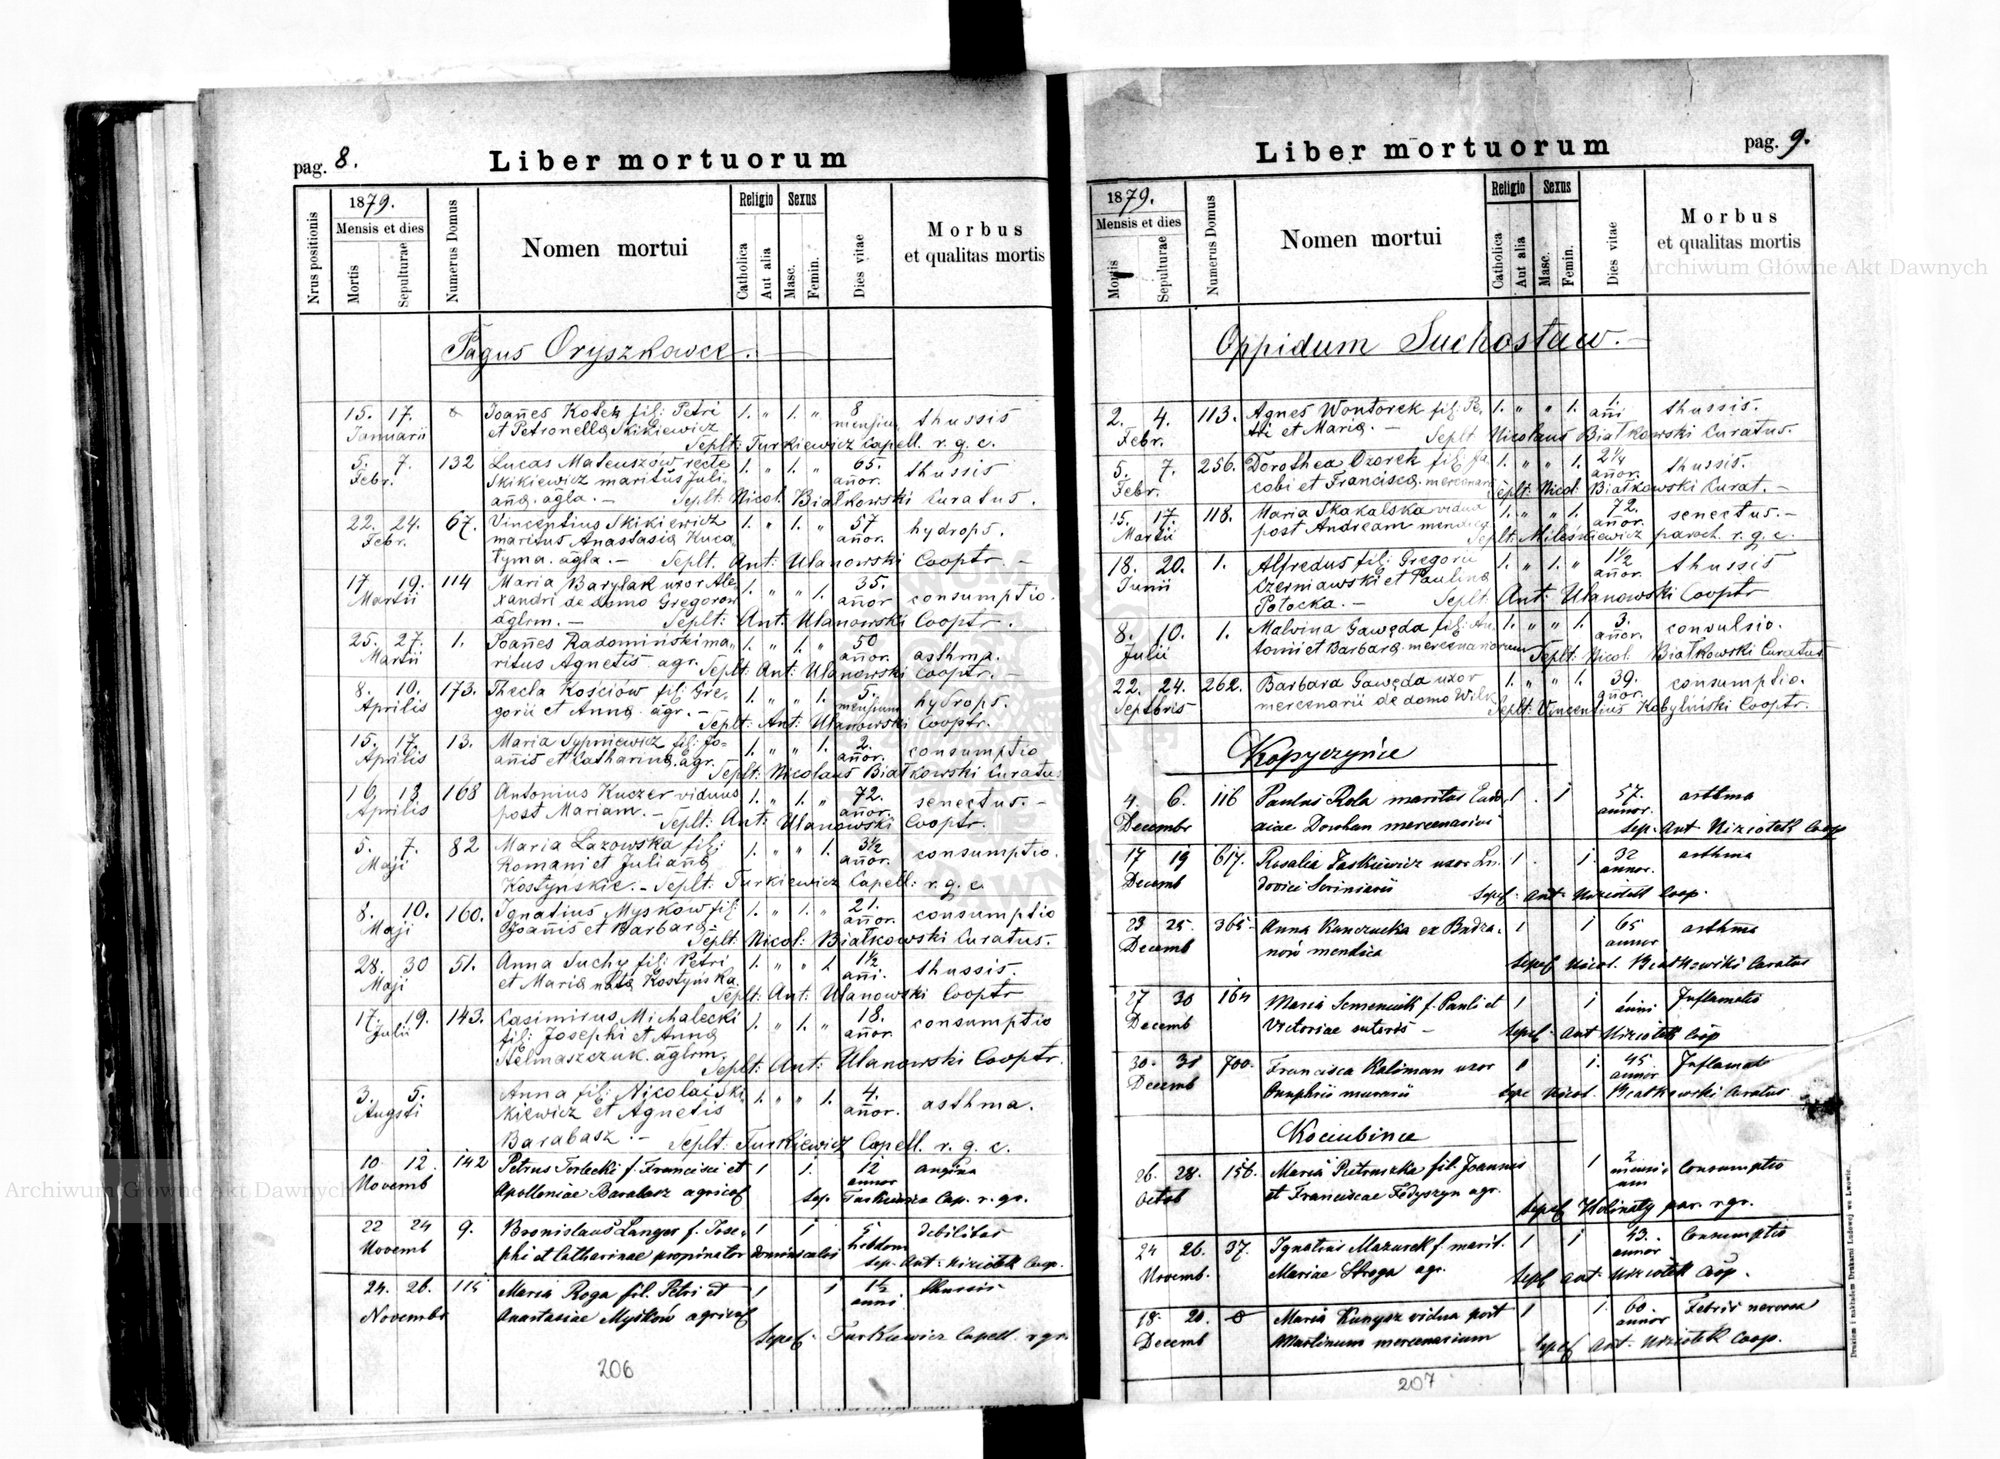 pag. 8.
Liber mortuorum
Nrus positionis
1879.
Mensis et dies
Mortis
Sepulturae
Numerus Domus
Nomen mortui
Religio
Catholica
Aut alia
Sexus
Masc.
Femin.
Dies vitae
Morbus
et qualitas mortis
Pagus Oryszkowce.
15. 17. Joañes Kotek fil: Petri 1. " 1. " 8
Januarii et Petronella Skikiewicz mensium thussis
Seplt: Turkiewicz Capell. r. g. c.
5. 7. 132 Lucas Mateuszów recte 1. " 1. " 65.
Febr. Skikiewicz maritus Juli- añor. thussis
aña. agla. — Seplt. Nicol. Białkowski Curatus.
22. 24. 67. Vincentius Skikiewicz 1. " 1. " 57
Febr. maritus Anastasia Kuca- añor. hydrops.
tyma. agla. — Seplt. Ant: Ulanowski Cooptr. —
17 19. 114 Maria Barylak uxor Ale- 1. " " 1. 35.
Martii xandri de domo Gregorow añor consumptio.
aglrm. — Seplt: Ant: Ulanowski Cooptr.
25. 27. 1. Joañes Radomiński ma- 1. " 1. " 50
Martii ritus Agnetis agr. añor. asthma.
Seplt: Ant: Ulanowski Cooptr. —
8. 10. 173. Thecla Kościów fil: Gre- 1. " " 1. 5.
Aprilis gorii et Anna agr. — mensium hydrops.
Seplt: Ant: Ulanowski Cooptr.
15. 17. 13. Maria Sypniewicz fil: Jo- 1. " " 1. 2.
Aprilis añis et Catharina. agr. añor. consumptio
Seplt: Nicolaus Białkowski Curatus
16. 18 168 Antonius Kuczer viduus 1. " 1. " 72.
Aprilis post Mariam. — añor. senectus. —
Seplt: Ant: Ulanowski Cooptr.
5. 7. 82 Maria Lazowska fil: 1. " " 1. 3½
Maji Romani et Juliana añor. consumptio.
Kostyńskie. — Seplt: Turkiewicz Capell: r. g. c.
8. 10. 160. Ignatius Myskow fil: 1. " 1. " 21.
Maji Joañis et Barbara añor. consumptio
Seplt: Nicol: Białkowski Curatus.
28. 30 51. Anna Suchy fil: Petri 1. " " 1. 1½
Maji et Maria nata Kostyńska. añi. thussis.
Seplt: Ant: Ulanowski Cooptr
17. 19. 143. Casimirus Michalecki 1. " 1. " 18.
Julii fil: Josephi et Anna añor. consumptio
Helmaszczuk. aglrm.
Seplt: Ant: Ulanowski Cooptr.
3. 5. Anna fil: Nicolai Ski- 1. " " 1. 4.
Augsti kiewicz et Agnetis añor. asthma.
Barabasz. — Seplt: Turkiewicz Capell. r. g. c.
10 12. 142 Petrus Terlecki f. Francisci et 1 1. 12 angina
Novemb Apolloniae Barabasz agricol annor
Sep. Turkiewicz Cap. r. gr.
22 24 9. Bronislaus Langer f. Jose- 1 1 5 debilitas
Novemb phi et Catharinae propinator hebdom
sep. Ant: Niziołek Coop.
24. 26. 115 Maria Roga fil. Petri et 1 1 1½ thussis
Novembr Anastasiae Myśków agricol anni
Sepel: Turkiewicz Capell. r gr.
206
pag. 9.
Liber mortuorum
1879.
Mensis et dies
Mortis
Sepulturae
Numerus Domus
Nomen mortui
Religio
Catholica
Aut alia
Sexus
Masc.
Femin.
Dies vitae
Morbus
et qualitas mortis
Oppidum Suchostaw. —
2. 4. 113. Agnes Wontorek fil: Pe- 1. " " 1. 1. thussis.
Febr. tri et Maria. — añi
Seplt Nicolaus Białkowski Curatus.
5. 7. 256. Dorothea Ozorek fil: Ja- 1. " " 1. 2¼ thussis.
Febr. cobi et Francisca. mercenar. añor.
Seplt: Nicol: Białkowski Curat. —
15. 17. 118. Maria Skakalska vidua 1. " " 1. 72. senectus. —
Martii post Andream mendica añor.
Seplt: Mileśkiewicz paroch. r. g. c.
18. 20. 1. Alfredus fil: Gregorii 1. " 1. " 1½ thussis
Junii Czerniawski et Paulina añor.
Potocka. — Seplt: Ant: Ulanowski Cooptr
8. 10. 1. Malvina Gawęda fil: An- 1. " " 1. 3. convulsio.
Julii tonii et Barbara. mercenariorum añor.
Seplt: Nicol: Białkowski Curatus
22. 24. 262. Barbara Gawęda uxor 1. " " 1. 39. consumptio.
Septbris mercenarii de domo Wilk añor.
Seplt: Vincentius Kobyliński Cooptr.
Kopyczyńce
4. 6. 116 Paulus Rola maritus Eudo- 1 . 1 57. asthma
Decembr xiae Dowhan mercenarius annor.
Sep. Ant Niziołek Coop
17 19 617. Rosalia Jaskiewicz uxor Lu- 1 . 1 32 asthma
Decemb dovici Scriniarii annor.
Sepel: Ant. Niziołek Coop.
23 25. 365 Anna Kunczucka ex Budza- 1 1 65 asthma
Decemb nów mendica annor
Sepel Nicol. Białkowski Curatus
27 30 164 Maria Semeniuk f. Pauli et 1 1 1 Inflamatio
Decemb Victoriae sutoris — anni
Sepel. Ant Niziołek Coop
30. 31 700. Francisca Kaliman uxor 1 1. 45 Inflamat
Decemb Onuphrii murarii annor
Sepe Nicol. Białkowski Curatus
Kociubince
26. 28. 156. Maria Pietruszka fil. Joannis 1 2 Consumptio
Octob et Franciscae Fedyszyn agr. mensi
Sepel Holinaty par. r gr.
24 26. 37. Ignatius Mazurek f. marit. 1 1 43. Consumptio
Novemb. Mariae Stroga agr. annor
Sepel Ant. Niziołek Coop.
18. 20. Maria Kunysz vidua post 1 1. 60. Febris nervosa
Decemb Martinum mercenarium annor
Sepel Ant: Niziołek Coop.
207
Drukiem i nakładem Drukarni Ludowej we Lwowie.
Archiwum Główne Akt Dawnych
Archiwum Główne Akt Dawnych